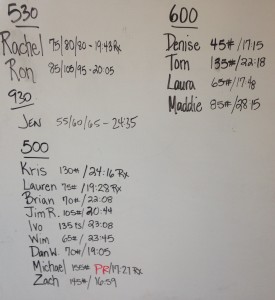 530
Rachel 75/80/80 - 19:43 Rx
Ron 85/105/95 - 20:05
930
Jen 55/60/65 - 24:35
500
Kris 130# / 24:16 Rx
Lauren 75# / 19:28 Rx
Brian 70# / 22:08
Jim R. 105# / 20:44
Ivo 135 / 23:08
Wim 65# / 23:45
Dan W. 70# / 19:05
Michael 155# PR / 19:27 Rx
Zach 145# / 16:59
600
Denise 45# / 17:15
Tom 135# / 22:18
Laura 65# / 17:48
Maddie 85# / 28:15